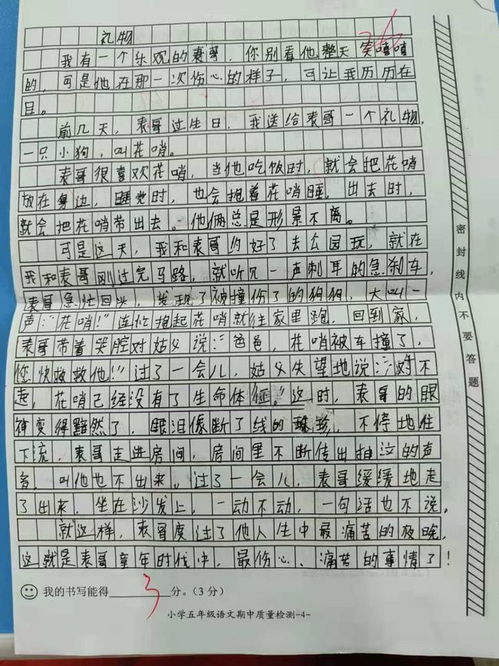 礼物
我有一个乐观的表哥，你别看他整天笑嘻嘻
的，可是他在那一次伤心的样子，可让我历历在
目。
前几天，表哥过生日，我送给表哥一个礼物，
一只小狗，叫花哨。
表哥很喜欢花哨，当他吃饭时，就会把花哨
放在身边，睡觉时，也会抱着花哨睡，出去时，
就会把花哨带出去。他俩总是形景不离。
可是这天，我和表哥约好了去公园玩，就在
我和表哥刚过完马路，就听见一声刺耳的急刹车，
表哥急忙回头，发现了被撞伤了的狗狗，大叫一
声：“花哨！”连忙抱起花哨就往家里跑，回到家，
表哥带着哭腔对姑父说：“爸爸，花哨被车撞了，
您快救救他！”过了一会儿，姑父失望地说：“对不
起，花哨已经没有了生命体征。”这时，表哥的眼
神变得黯然了，眼泪像断了线的珠，不停地往
下流，表哥走进房间，房间里不断传出抽泣的声
音，叫他也不出来。过了一会儿，表哥缓缓地走
了出来，坐在沙发上，一动不动，一句话也不说。
就这样，表哥度过了他人生中最痛苦的夜晚，
这就是表哥童年时代中，最伤心、痛苦的事情了！
我的书写能得3分。（3分）
小学五年级语文期中质量检测-4-
密封线内不要答题